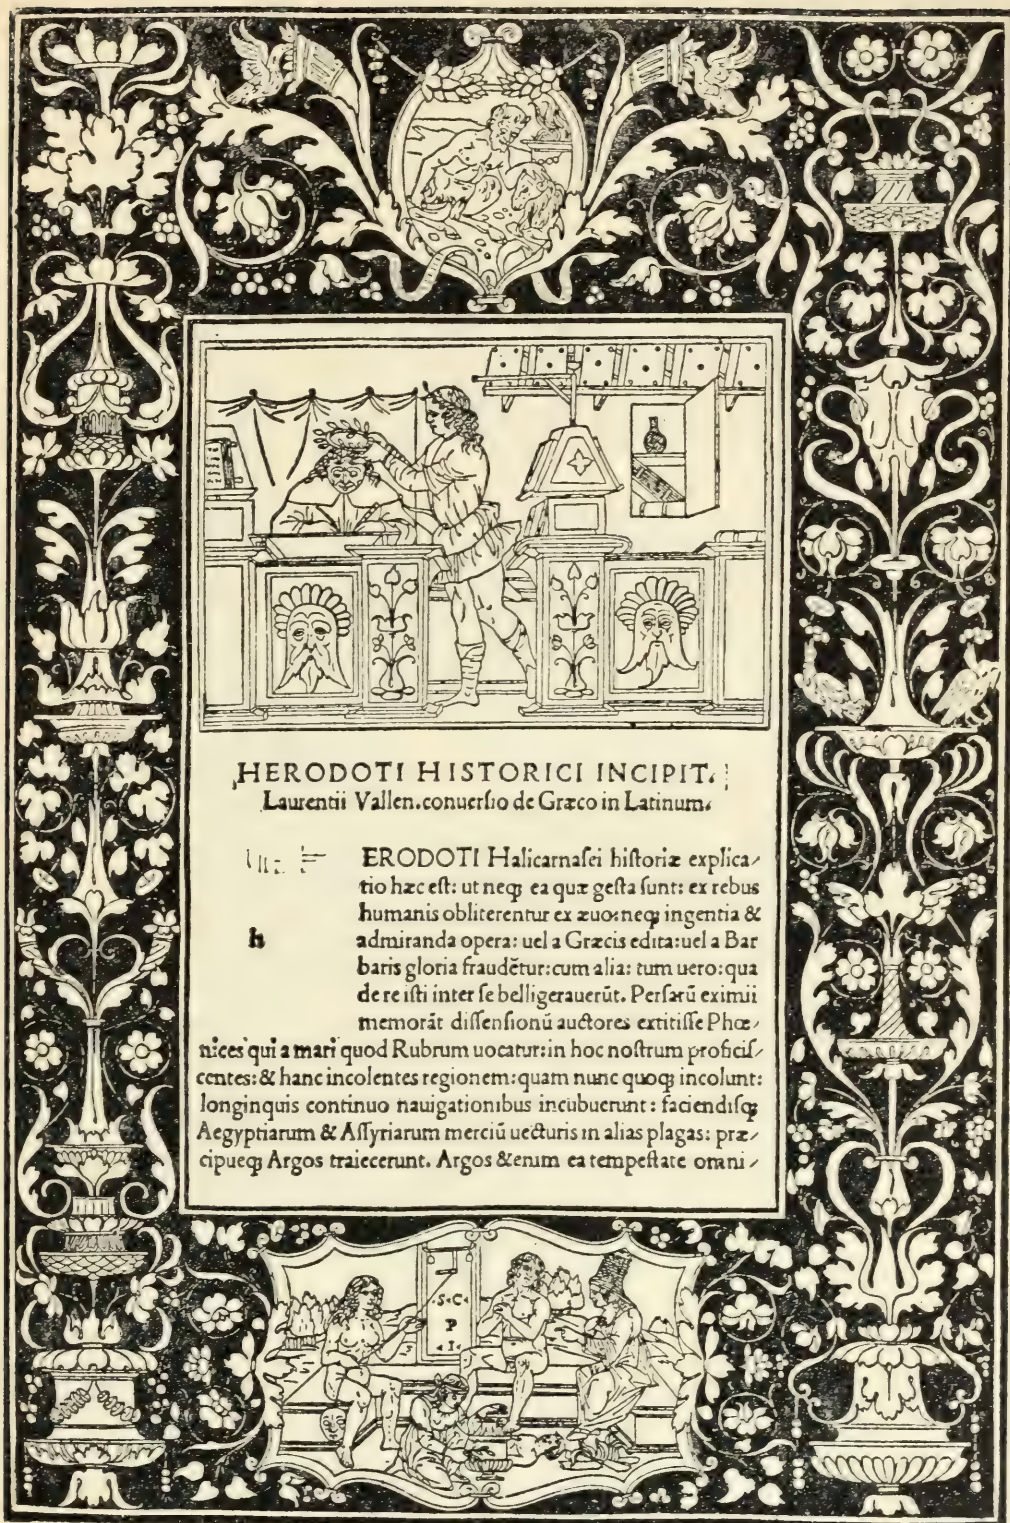 HERODOTI HISTORICI INCIPIT.
Laurentii Vallen.conuerſio de Græco in Latinum.
h
ERODOTI Halicarnaſei hiſtoriæ explica⸗
tio hæc eſt: ut neqꝫ ea quæ geſta ſunt: ex rebus
humanis obliterentur ex æuo:neqꝫ ingentia &
admiranda opera: uel a Græcis edita:uel a Bar
baris gloria fraudẽtur:cum alia: tum uero:qua
de re iſti inter ſe belligerauerũt. Perſarũ eximii
memorãt diſſenſionũ auctores extitiſſe Phœ⸗
nices qui a mari quod Rubrum uocatur:in hoc noſtrum proficiſ⸗
centes:& hanc incolentes regionem:quam nunc quoqꝫ incolunt:
longinquis continuo nauigationibus incubuerunt: faciendiſqꝫ
Aegyptiarum & Aſſyriarum merciũ uecturis in alias plagas: præ⸗
cipueqꝫ Argos traiecerunt. Argos &enim ea tempeſtate omni⸗
·S·C·
P
·I·